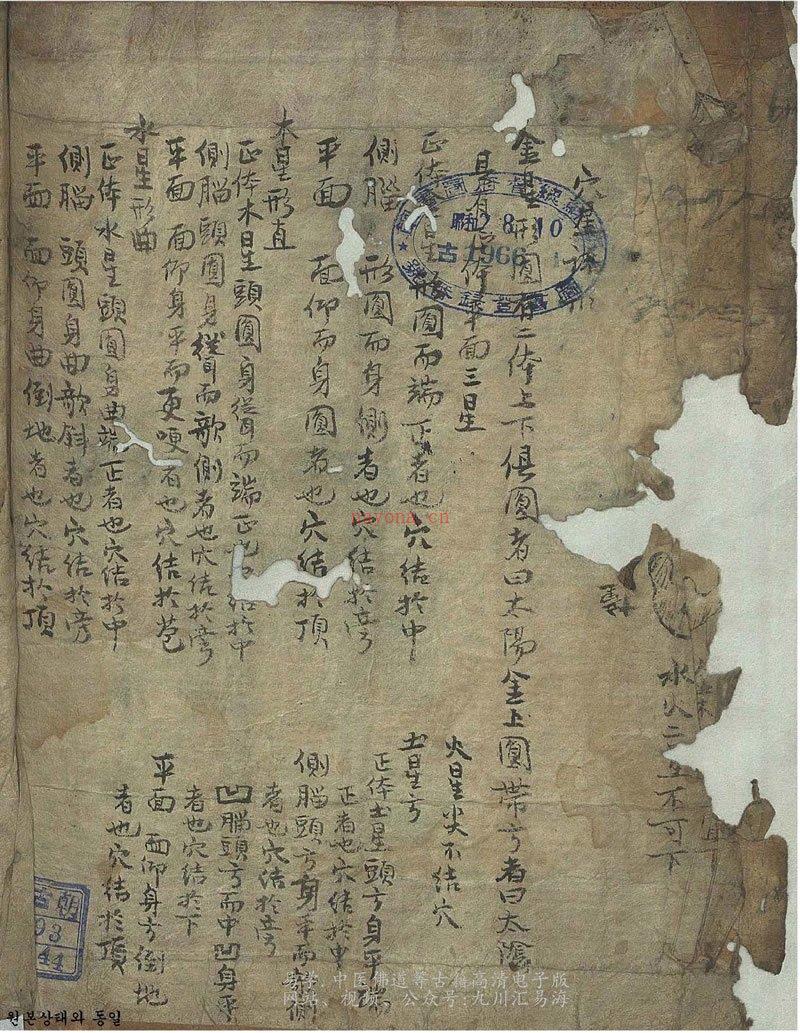 水火二星不可下
穴星
金星形圓有二体上下俱圓者曰太陽金上圓帶方者曰太陰
平面三星
正体金星形圓而端正者也穴結於中
側腦 形圓而身側者也穴結於旁
平面 面仰而身圓者也穴結於頂
木星形直
正体木星頭圓身聳而端正者也穴結於中
側腦頭圓身聳而欹側者也穴結於旁
平面面仰身平而更哽者也穴結於苞
水星形曲
正体水星頭圓身曲端正者也穴結於中
側腦頭圓身曲欹斜者也穴結於旁
平面面仰身曲倒地者也穴結於頂
火星尖不結穴
土星方
正体土星頭方身平端
正者也穴結於中
側腦頭方身平而側
者也穴結於旁
凹腦頭方而中凹身平
者也穴結於下
平面面仰身方倒地
者也穴結於頂
28.10
古1966
古朝
93
44
nayona.cn
易学、中医、佛道等古籍高清电子版
网站、视频、公众号:九川汇易海
원본상태와 동일